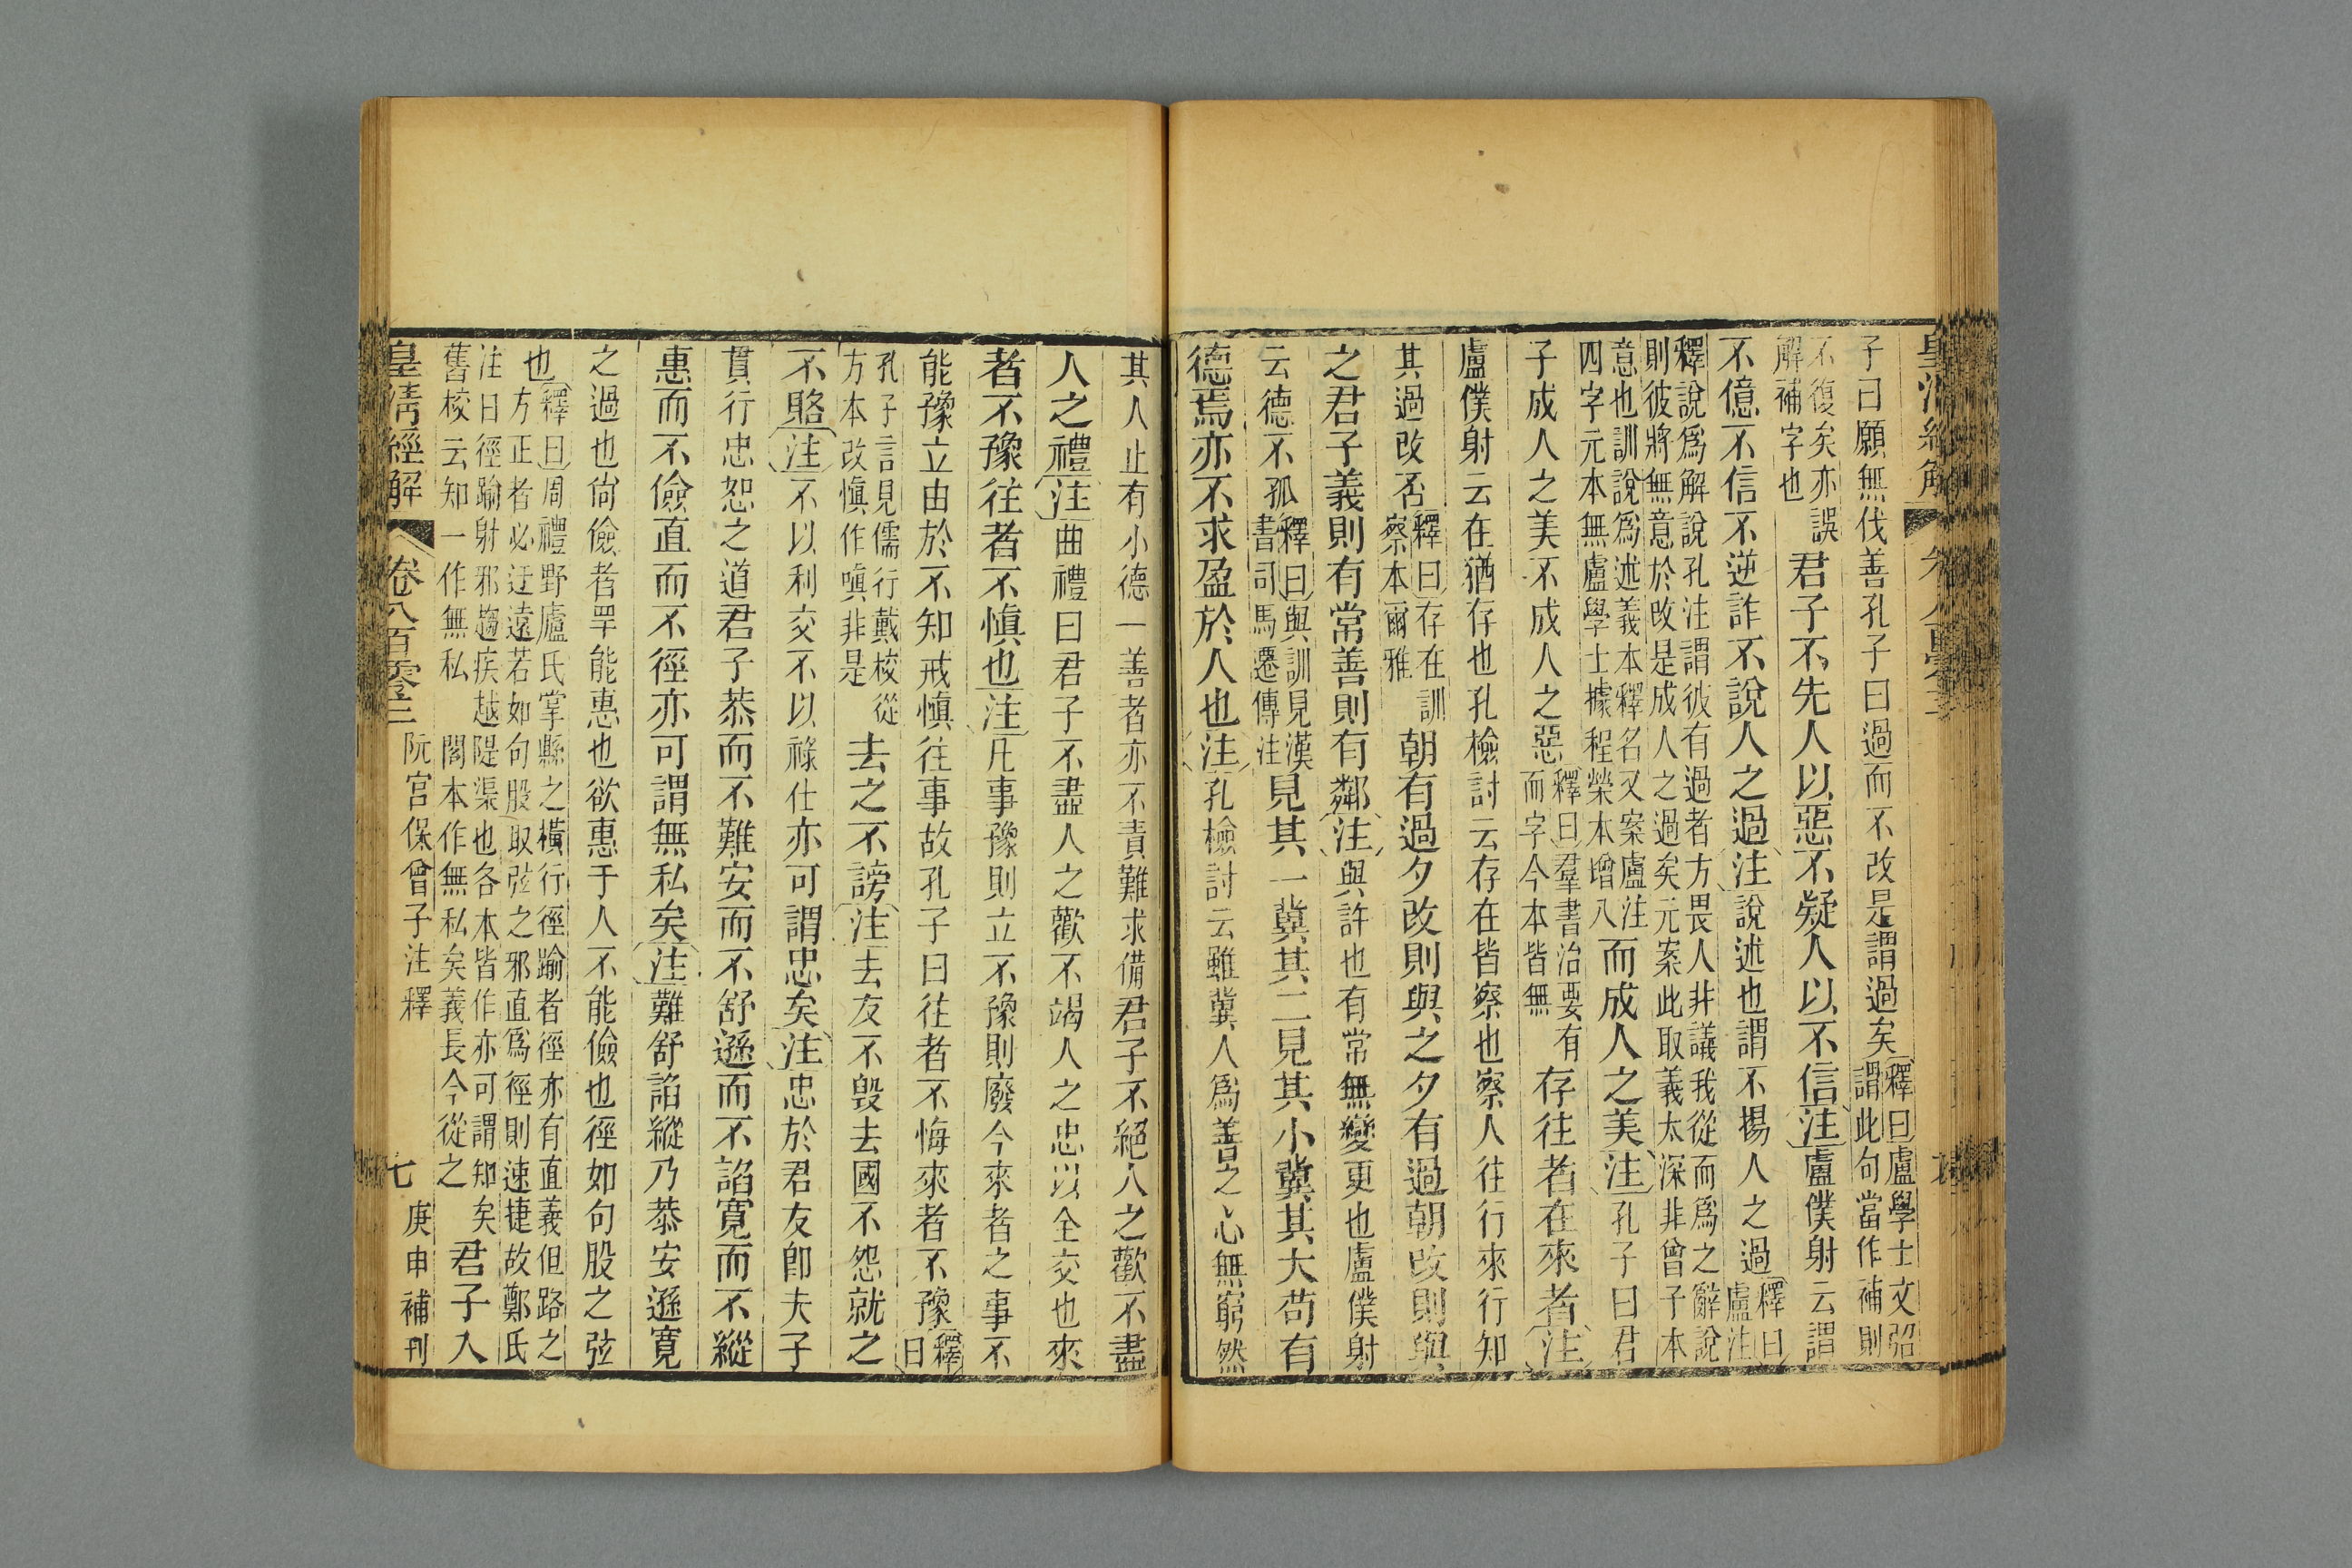 皇清經解
子曰願無伐善孔子曰過而不改是謂過矣釋曰盧學士文弨
謂此句當作補則
不復矣亦誤
解補字也君子不先人以惡不疑人以不信注盧僕射云謂
不億不信不逆詐不說人之過注說述也謂不揚人之過釋曰
盧注
釋說爲解說孔注謂彼有過者方畏人非議我從而爲之辭說
則彼將無意於改是成人之過矣元案此取義太深非曾子本
意也訓說爲述義本釋名又案盧注
四字元本無盧學士據程榮本增八而成人之美注孔子曰君
子成人之美不成人之惡釋曰羣書治要有
而字今本皆無存往者在來者注
盧僕射云在猶存也孔檢討云存在皆察也察人往行來行知
其過改否釋曰存在訓
察本爾雅朝有過夕改則與之夕有過朝改則與
之君子義則有常善則有鄰注與許也有常無變更也盧僕射
云德不孤釋曰與訓見漢
書司馬遷傳注見其一冀其二見其小冀其大苟有
德焉亦不求盈於人也注孔檢討云雖冀人爲善之心無窮然
其人止有小德一善者亦不責難求備君子不絕人之歡不盡
人之禮注曲禮曰君子不盡人之歡不竭人之忠以全交也來
者不豫往者不愼也注凡事豫則立不豫則廢今來者之事不
能豫立由於不知戒愼往事故孔子曰往者不悔來者不豫釋
曰
孔子言見儒行戴校從
方本改愼作嗔非是去之不謗注去友不毀去國不怨就之
不賂注不以利交不以祿仕亦可謂忠矣注忠於君友卽夫子
貫行忠恕之道君子恭而不難安而不舒遜而不諂寬而不縱
惠而不儉直而不徑亦可謂無私矣注難舒諂縱乃恭安遜寬
之過也尙儉者罕能惠也欲惠于人不能儉也徑如句股之弦
也釋曰周禮野廬氏掌縣之橫行徑踰者徑亦有直義但路之
方正者必迂遠若如句股取弦之邪直爲徑則速捷故鄭氏
注曰徑踰射邪趨疾越隄渠也各本皆作亦可謂知矣
舊校云知一作無私閣本作無私矣義長今從之君子入
皇淸經解
卷八百零三
阮宮保曾子注釋
七
庚申補刊